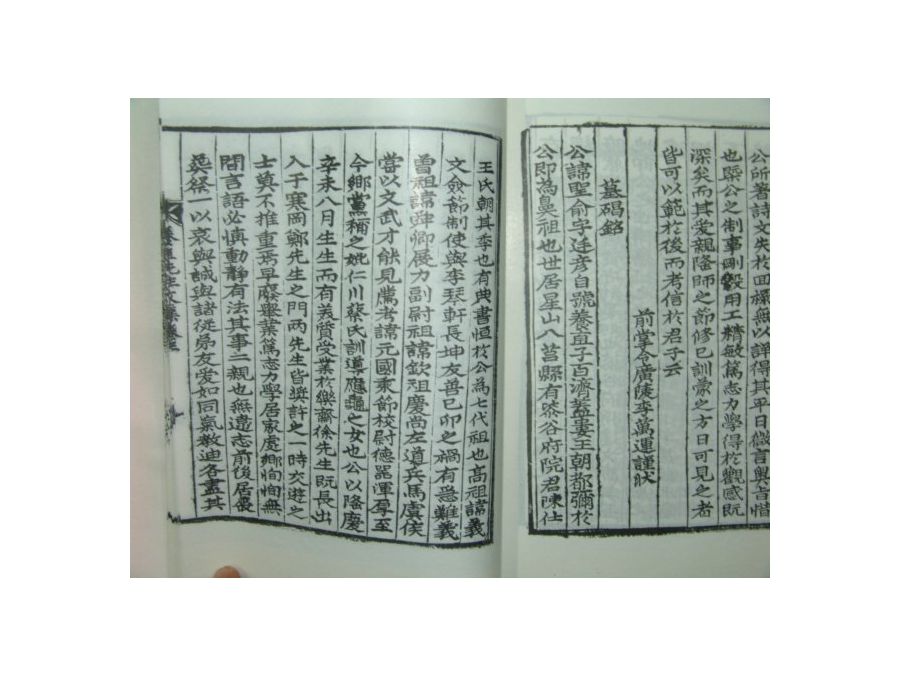 公所著詩文失於回祿無以詳得其平日微言奧旨惜
也槩公之制事剛毅用工精敏篤志力學得於觀感旣
深矣而其愛親隆師之節修己訓蒙之方日可見之者
皆可以範於後而考信於君子云
前掌令廣陵李萬運謹狀
墓碣銘
公諱聖俞字廷彥自號養直子百濟蓋婁王朝都彌於
公即為鼻祖也世居星山八莒縣有茶谷府院君陳仕
王氏朝其季也有典書恒於公為七代祖也高祖諱義
文僉節制使與李琴軒長坤友善己卯之禍有急難義
曾祖諱舜卿展力副尉祖諱欽祖慶尚左道兵馬虞侯
嘗以文武才能見薦考諱元國秉節校尉德器渾厚至
今鄕黨稱之妣仁川蔡氏訓導應龜之女也公以隆慶
辛未八月生生而有美質受業於樂齋徐先生旣長出
入于寒岡鄭先生之門兩先生皆奬許之一時交遊之
士莫不推重焉早廢擧業篤志力學居家處鄕恂恂無
間言語必愼動靜有法其事二親也無違志前後居喪
葬祭一以哀與誠與諸從弟友愛如同氣敎迪各盡其